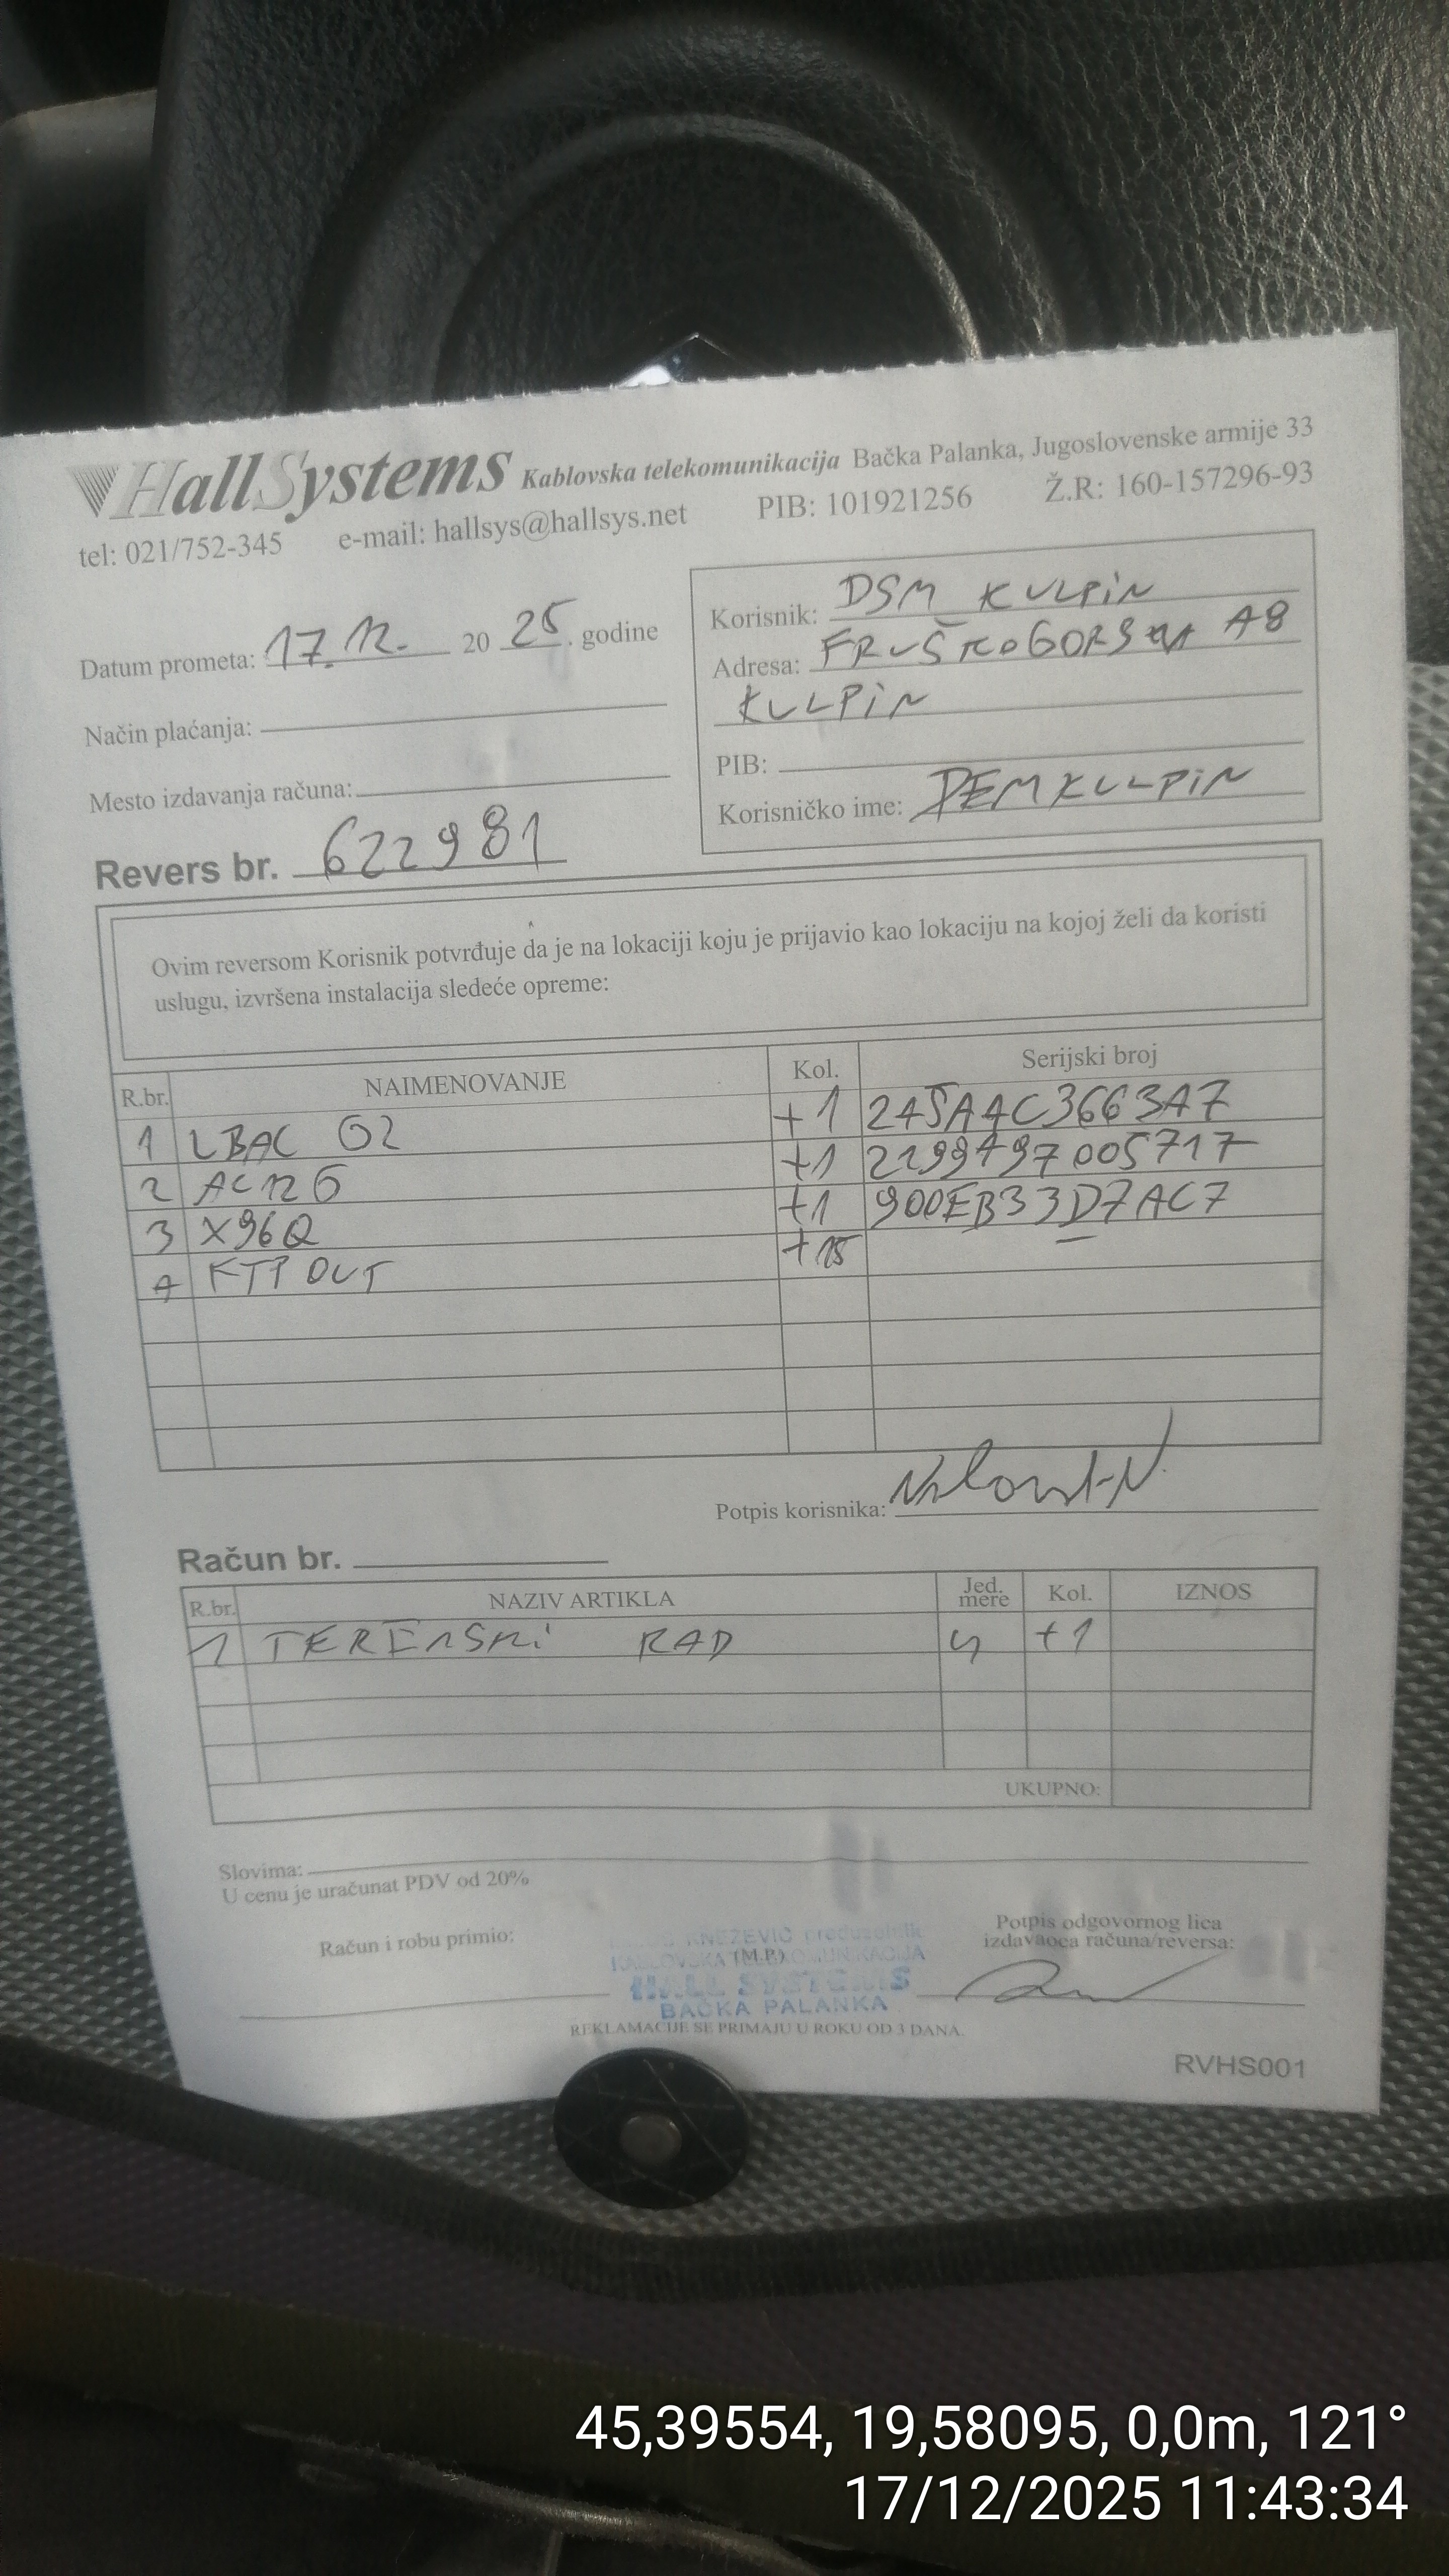 HallSystems Kablovska telekomunikacija Bačka Palanka, Jugoslovenske armije 33
tel: 021/752-345 e-mail: hallsys@hallsys.net PIB: 101921256 Ž.R: 160-157296-93
Datum prometa: 17.12. 20 25. godine
Način plaćanja:
Mesto izdavanja računa:
Revers br. 622981
Korisnik: DSM KULPIN
Adresa: A8
KULPIN
PIB:
Korisničko ime: DEMKULPIN
Ovim reversom Korisnik potvrđuje da je na lokaciji koju je prijavio kao lokaciju na kojoj želi da koristi
uslugu, izvršena instalacija sledeće opreme:
R.br. NAIMENOVANJE Kol. Serijski broj
1 LBAC 02 +1 245A4C3663A7
2 AC12G +1
3 X96Q +1 900EB33D7AC7
4 FTP OUT +15
Potpis korisnika:
Račun br.
R.br. NAZIV ARTIKLA Jed. mere Kol. IZNOS
1 TERENSKI RAD +1
UKUPNO:
Slovima:
U cenu je uračunat PDV od 20%
Račun i robu primio:
KNEŽEVIĆ
KABLOVSKA TELEKOMUNIKACIJA
(M.P.)
HALL SYSTEMS
BAČKA PALANKA
Potpis odgovornog lica
izdavaoca računa/reversa:
REKLAMACIJE SE PRIMAJU U ROKU OD 3 DANA.
RVHS001
45,39554, 19,58095, 0,0m, 121°
17/12/2025 11:43:34